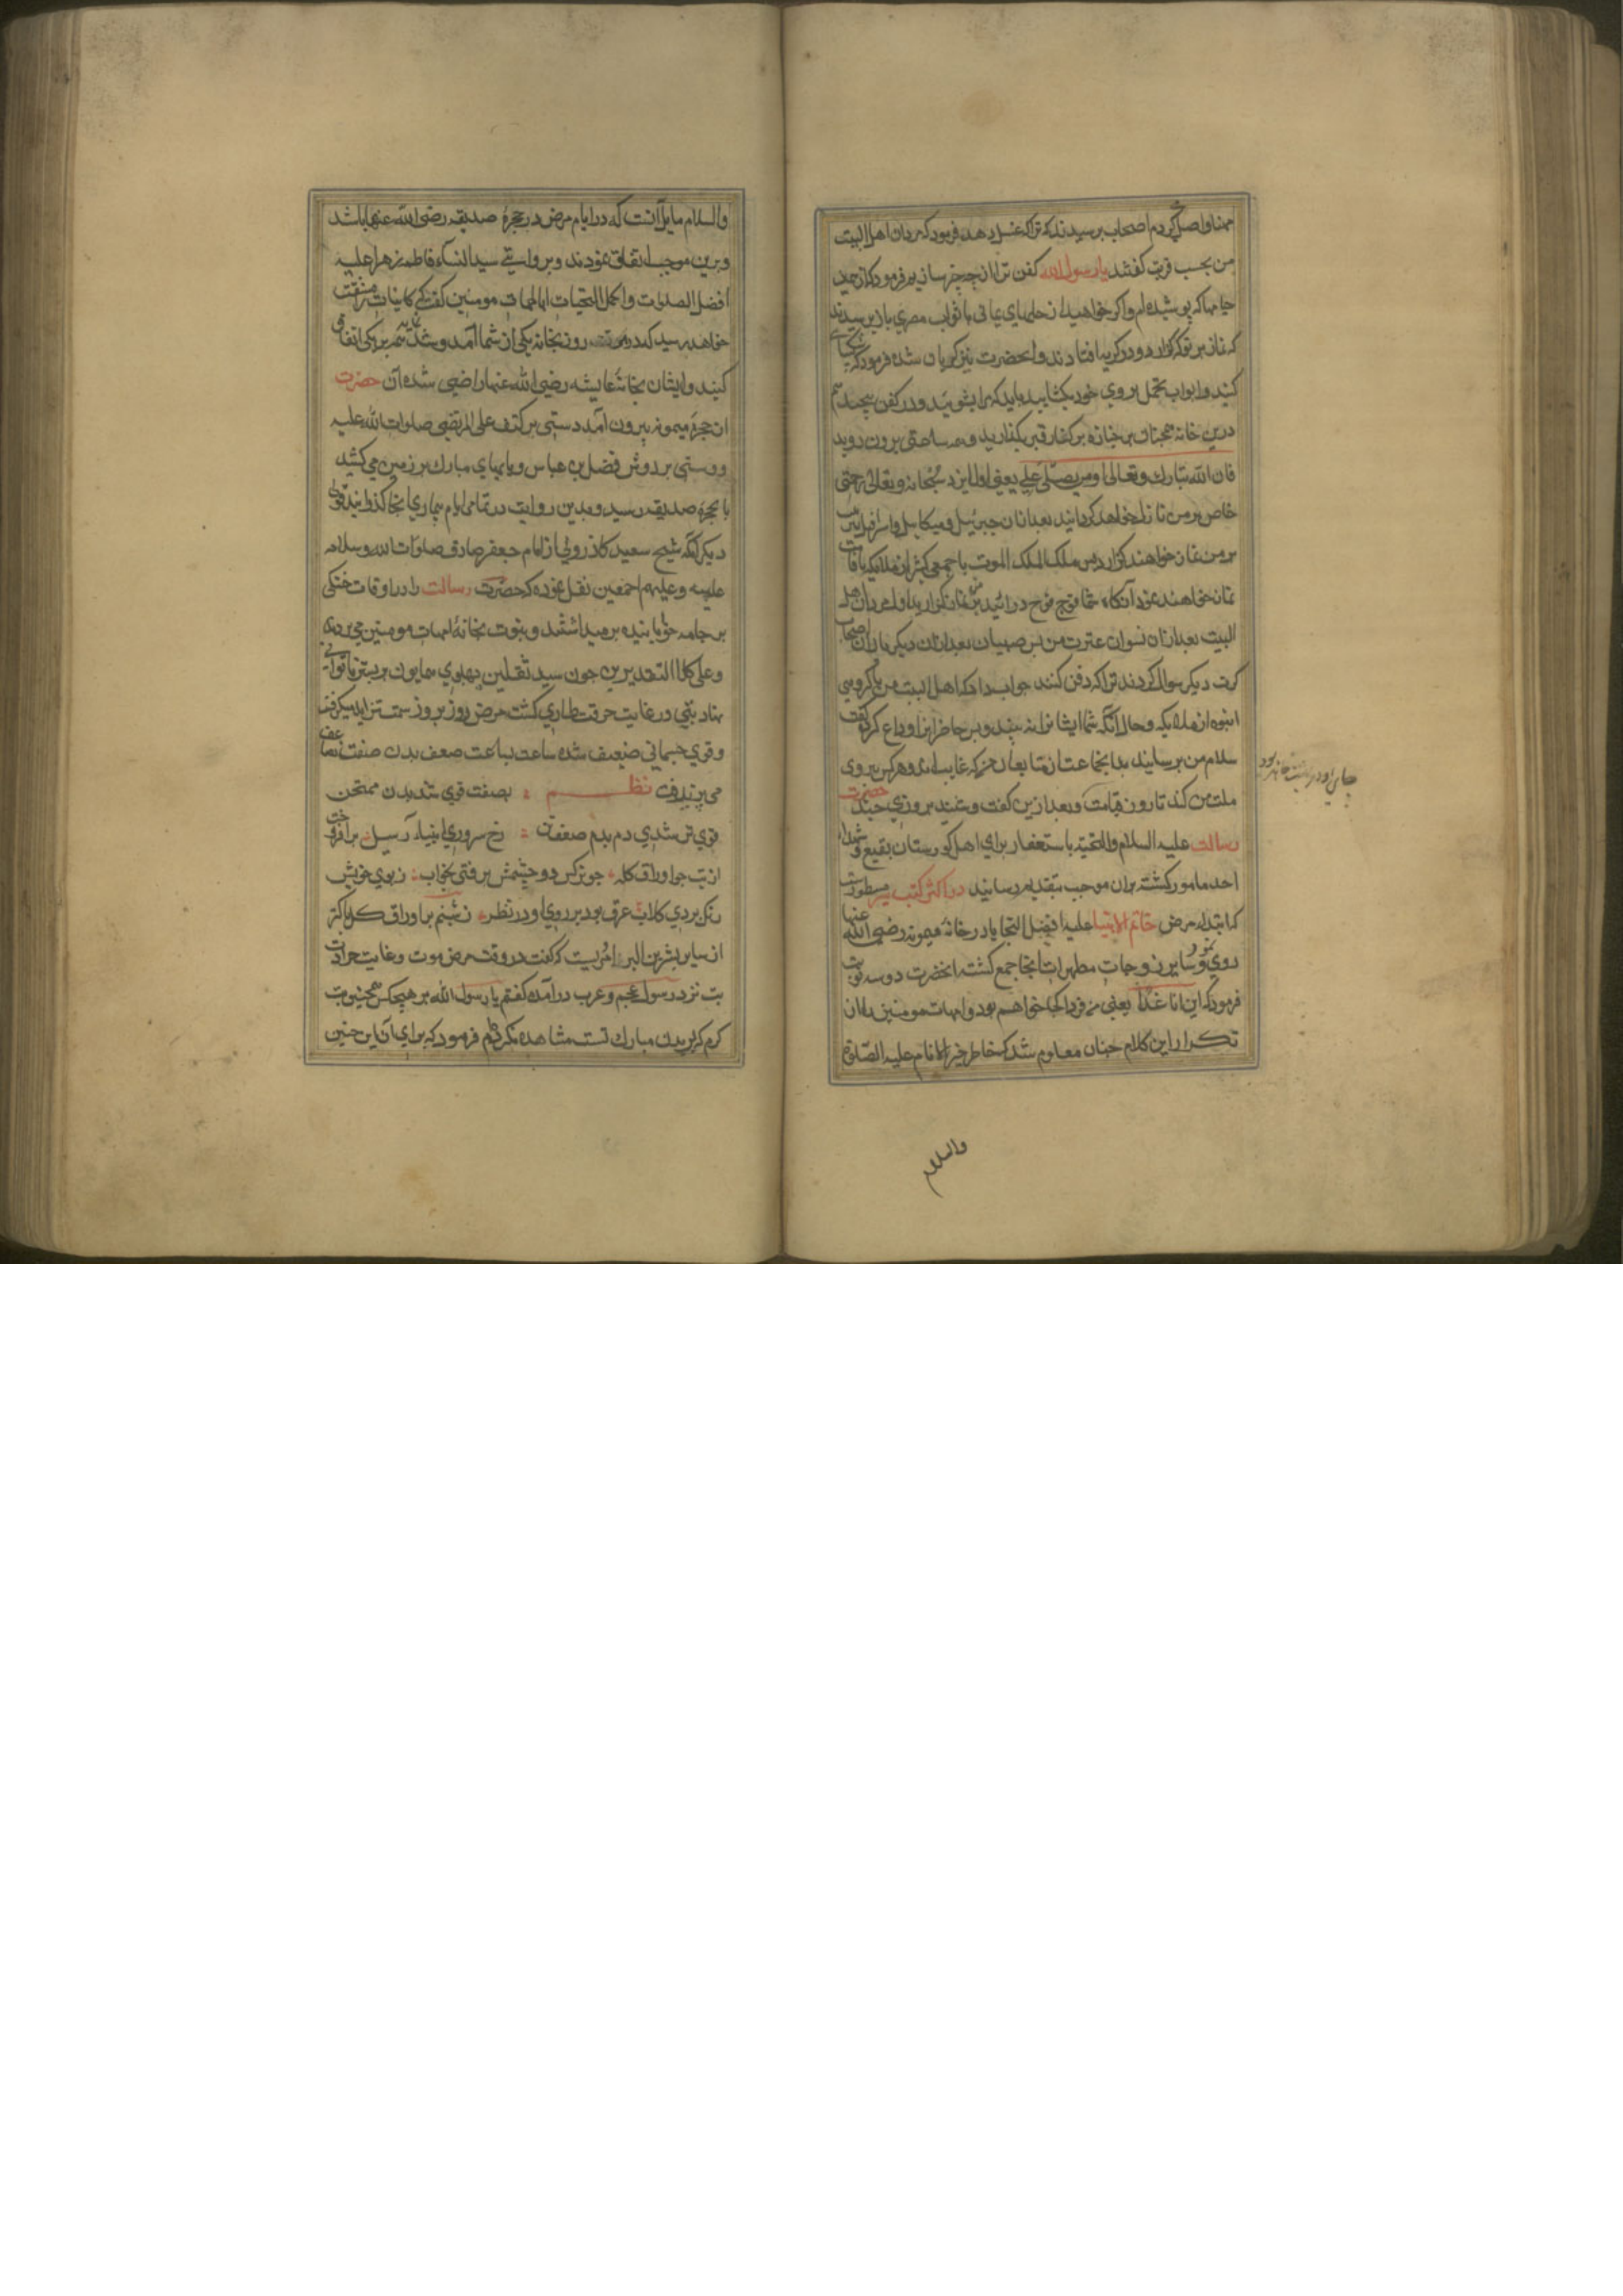 اصحاب پرسیدند که ترا که غسل دهد فرمود که مردان اهل البیت
من بحسب قربت گفتند یا رسول الله کفن ترا از چه چیز سازیم فرمود که از همین
جامها که پوشیده‌ام و اگر خواهید از حلهای یمانی یا ثواب مصری باز پرسیدند
که نماز بر تو که گزارد و در گریه افتادند و آنحضرت نیز گریان شده فرمود که
کنید و ابواب تحمل بر روی خود بکشایید باید که مرا بشویید و در کفن پیچید
درین خانه همچنان بر جنازه بر کنار قبر بگذارید و ساعتی برون روید
فان الله تبارک وتعالی اول من یصلی علی یعنی اول ایزد سبحانه وتعالی رحمتی
خاص بر من نازل خواهد گردانید بعد از آن جبرئیل و میکایل و اسرافیل
بر من نماز خواهند گزارد پس ملک الموت با جمعی کثیر از ملایکه
نماز خواهند نمود آنگاه شما فوج فوج در آئید و بر من نماز گزارید اول مردان اهل
البیت بعد از آن نسوان عترت من پس صبیان بعد از آن دیگر یاران اصحاب
کرت دیگر سوال کردند ترا که دفن کند جواب داد که اهل البیت من با گروهی
انبوه از ملایکه و حال آنکه شما ایشانرا نه بینید و پس حاضرانرا وداع کرد گفت
سلام من برسانید بدانجماعت از متابعان من که غایب‌اند و هر کس پیروی
ملت من کند تا روز قیامت و بعد ازین گفت و شنید بروزی چند حضرت
رسالت علیه السلام والتحیة باستغفار برای اهل گورستان بقیع و شهداء
احد مامور گشته بران موجب بتقدیم رسانید در اکثر کتب سیر مسطورست
که ابتدای مرض خاتم الانبیا علیه افضل التحایا در خانه میمونه رضی الله عنها
روی نمود و سایر زوجات مطهرات آنجا جمع گشته آنحضرت دو سه نوبت
فرمود که این انا غدا یعنی من فردا کجا خواهم بود و امهات مومنین از آن
تکرار این کلام چنان معلوم شد که خاطر خیر الانام علیه الصلوة
والسلام
والسلام مایل آنست که در ایام مرض در حجرهٔ صدیقه رضی الله عنها باشد
وبرین موجب اتفاق نمودند و بروایتی سید النساء فاطمه زهرا علیها
افضل الصلوات واکمل التحیات با امهات مومنین گفت که
خواهد رسید که هر روز بخانه یکی از شما آمد و شد نماید
کنید وایشان بخانهٔ عایشه رضی الله عنها راضی شده آن حضرت
از حجرهٔ میمونه بیرون آمد دستی بر کتف علی المرتضی صلوات الله علیه
و دستی بر دوش فضل بن عباس و پایهای مبارک بر زمین می‌کشید
تا بحجرهٔ صدیقه رسید و بدین روایت در تمامی ایام بیماری آنجا گذرانید قولی
دیگر آنکه شیخ سعید کازرونی از امام جعفر صادق صلوات الله وسلامه
علیه وعلیهم اجمعین نقل نموده که حضرت رسالت را در اوقات خستگی
بر جامه خوابانیده بر میداشتند و بنوبت بخانهٔ امهات مومنین می بردند
وعلی کلا التقدیرین چون سید ثقلین پهلوی همایون بر بستر ناتوانی
نهاد تبی در غایت حرقت طاری گشت مرض روز بروز سمت تزاید میگرفت
وقوی جسمانی ضعیف شده ساعت بساعت ضعف بدن صفت تضاعف
می پذیرفت نظم بصفت قوی شد بدن ممتحن
قوی تر شدی دم بدم رخ سروری انبیاء رسیل برافروخت
از تب چو اوراق کله چو نرگس دو چشمش برفتی بخواب ز بوی خویش
رنگ بردی گلاب عرق بود بر روی او در نظر ز شبنم بر اوراق گل پاکتر
از سایر بشر بن البراء مرویست که گفت در وقت مرض موت و غایت حرارت
تب نزد رسول عجم و عرب در آمده گفتم یا رسول الله بر هیچکس همچنین تب
گرم که بر بدن مبارک تست مشاهده نکرده‌ام فرمود که برای آن این چنین